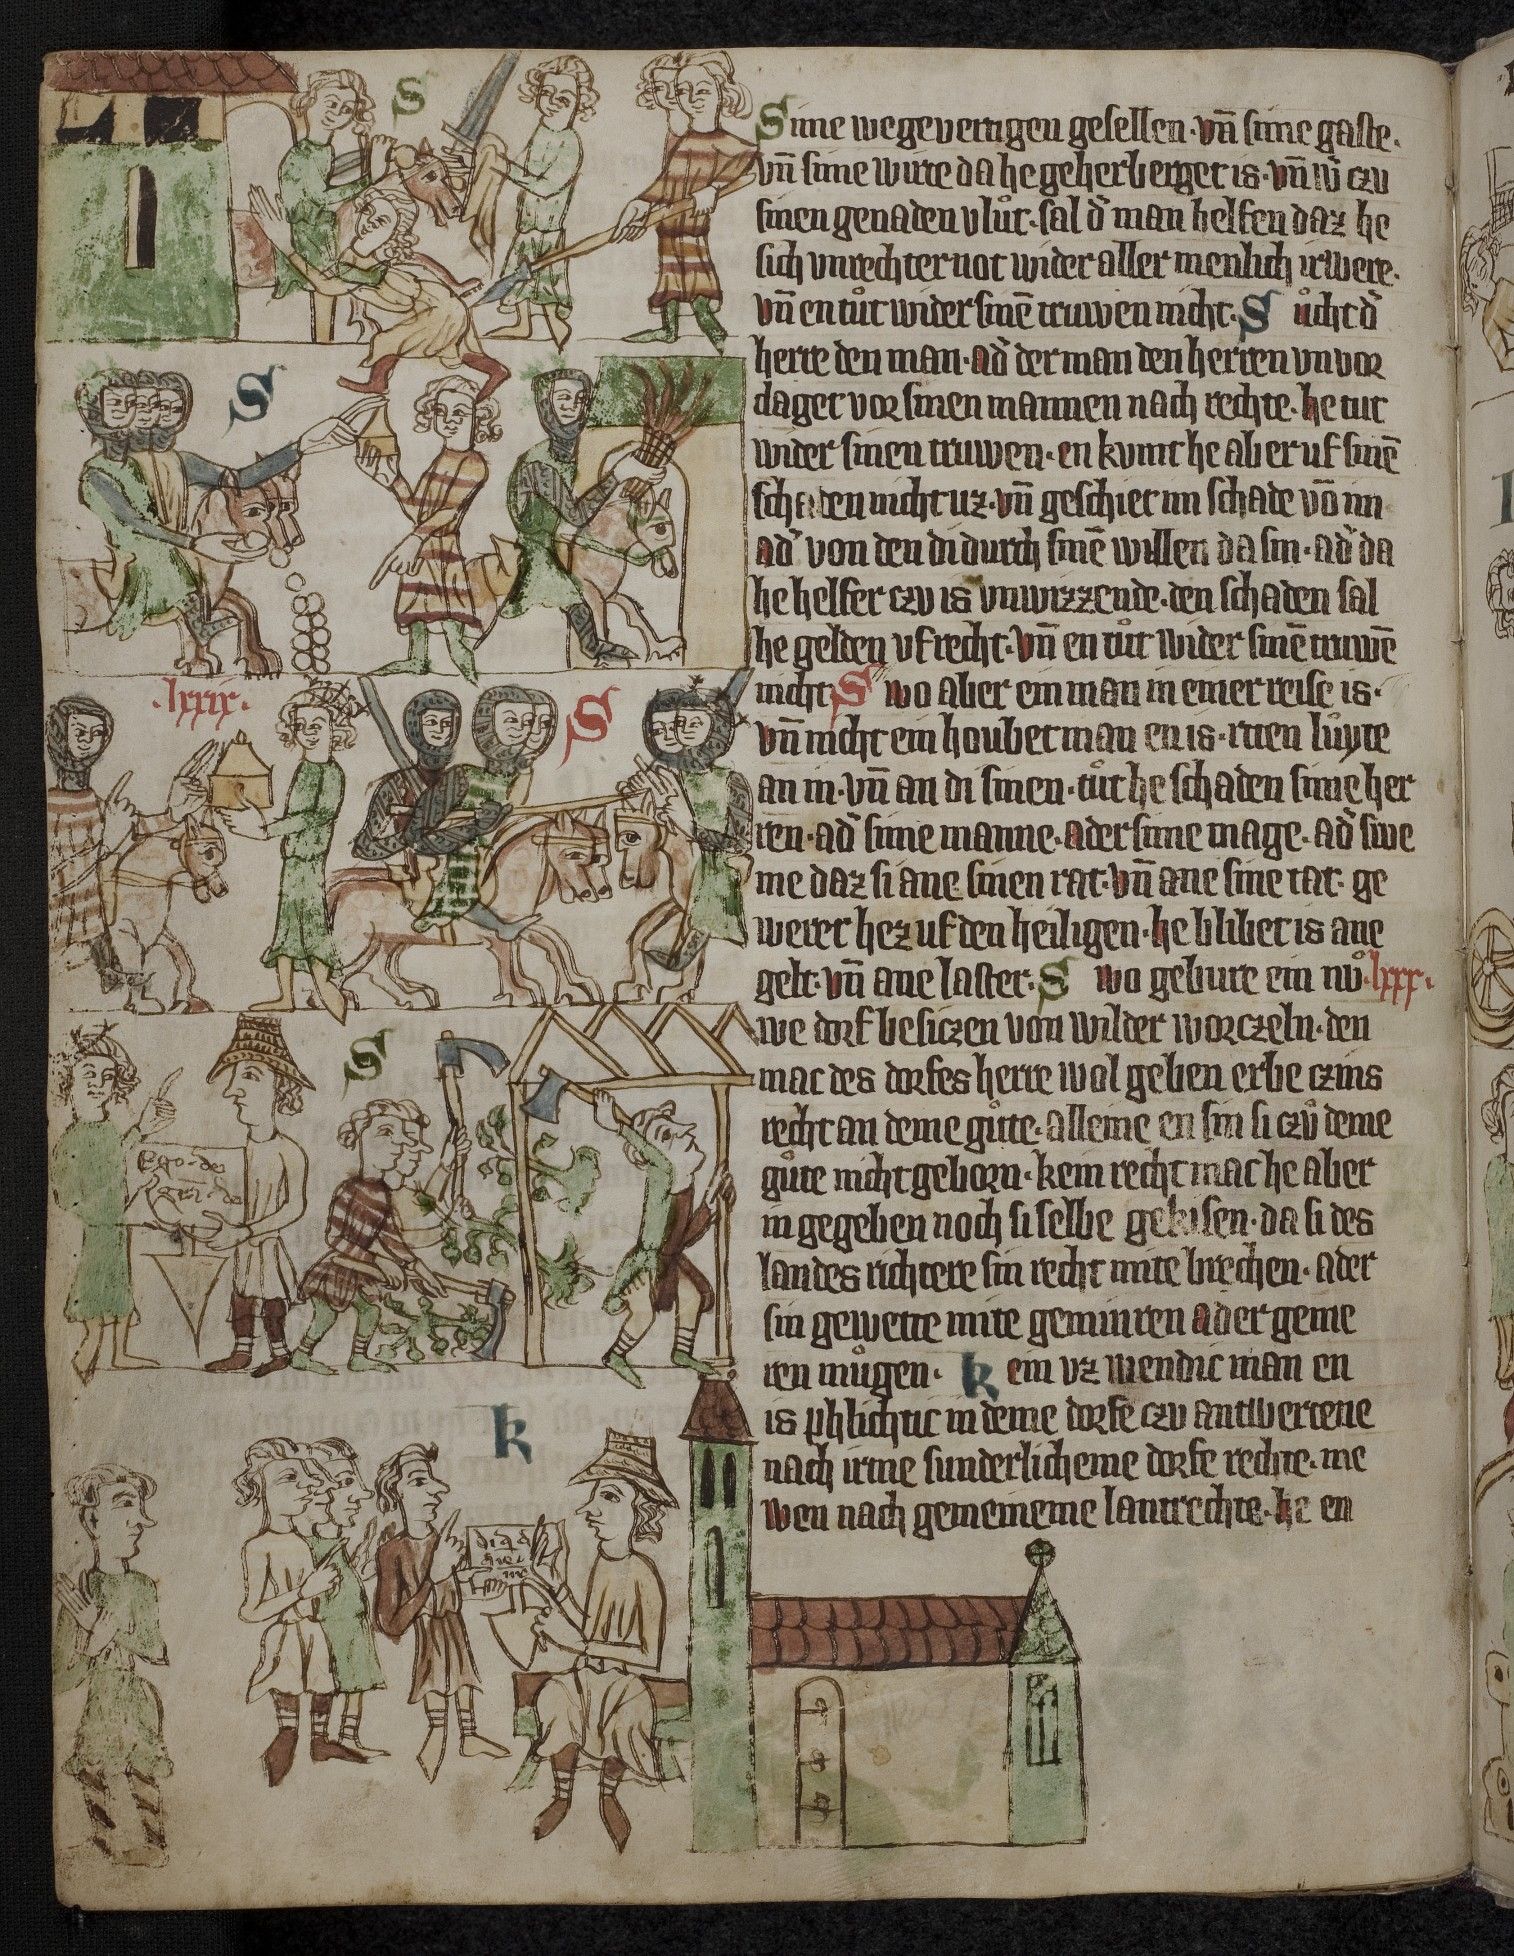 S
Sime wegevertigen gesellen · vn̄ sime gaste ·
vn̄ sime wirte da he geherberget is · vn̄ sw̄ czu
sinen genaden vlůt · sal d̄ man helfen daz he
sich vnrechter not wider aller menlich irwere ·
vn̄ en tůt wider sinē truwen nicht · S ůcht d̄
herre den man · ad̄ der man den herren vnvor
daget vor sinen mannen nach rechte · he tut
wider sinen truwen · en kvmt he aber uf sinē
schaden nicht uz · vn̄ geschiet im schade vō im
ad̄ von den di durch sinē willen da sin · ad̄ da
he helfer czv is vnwizzende · den schaden sal
he gelden vf recht · vn̄ en tůt wider sinē truwē
nicht S wo aber ein man in einer reise is ·
vn̄ nicht ein houbetman en is · riten lůyte
an in · vn̄ an di sinen · tůt he schaden sime her
ren · ad̄ sime manne · ader sime mage · ad̄ swe
me daz si ane sinen rat · vn̄ ane sine tat · ge
weret hez uf den heiligen · he blibet is ane
gelt · vn̄ ane laster · S wo gebure ein nů · lxxx ·
we dorf besiczen von wilder worczeln · den
mac des dorfes herre wol geben erbe czins
recht an deme gůte · alleine en sin si czů deme
gůte nicht geborn · kein recht mac he aber
in gegeben noch si selbe gekisen · da si des
landes richtere sin recht mite brechen · ader
sin gewette mite geminren ader geme
ren můgen · k ein vz wendic man en
is phlichtic in deme dorfe czv antwertene
nach irme sunderlicheme dorfe rechte · me
wen nach gemeineme lantrechte · he en
S
· lxxix ·
S
S
Ego · de
k